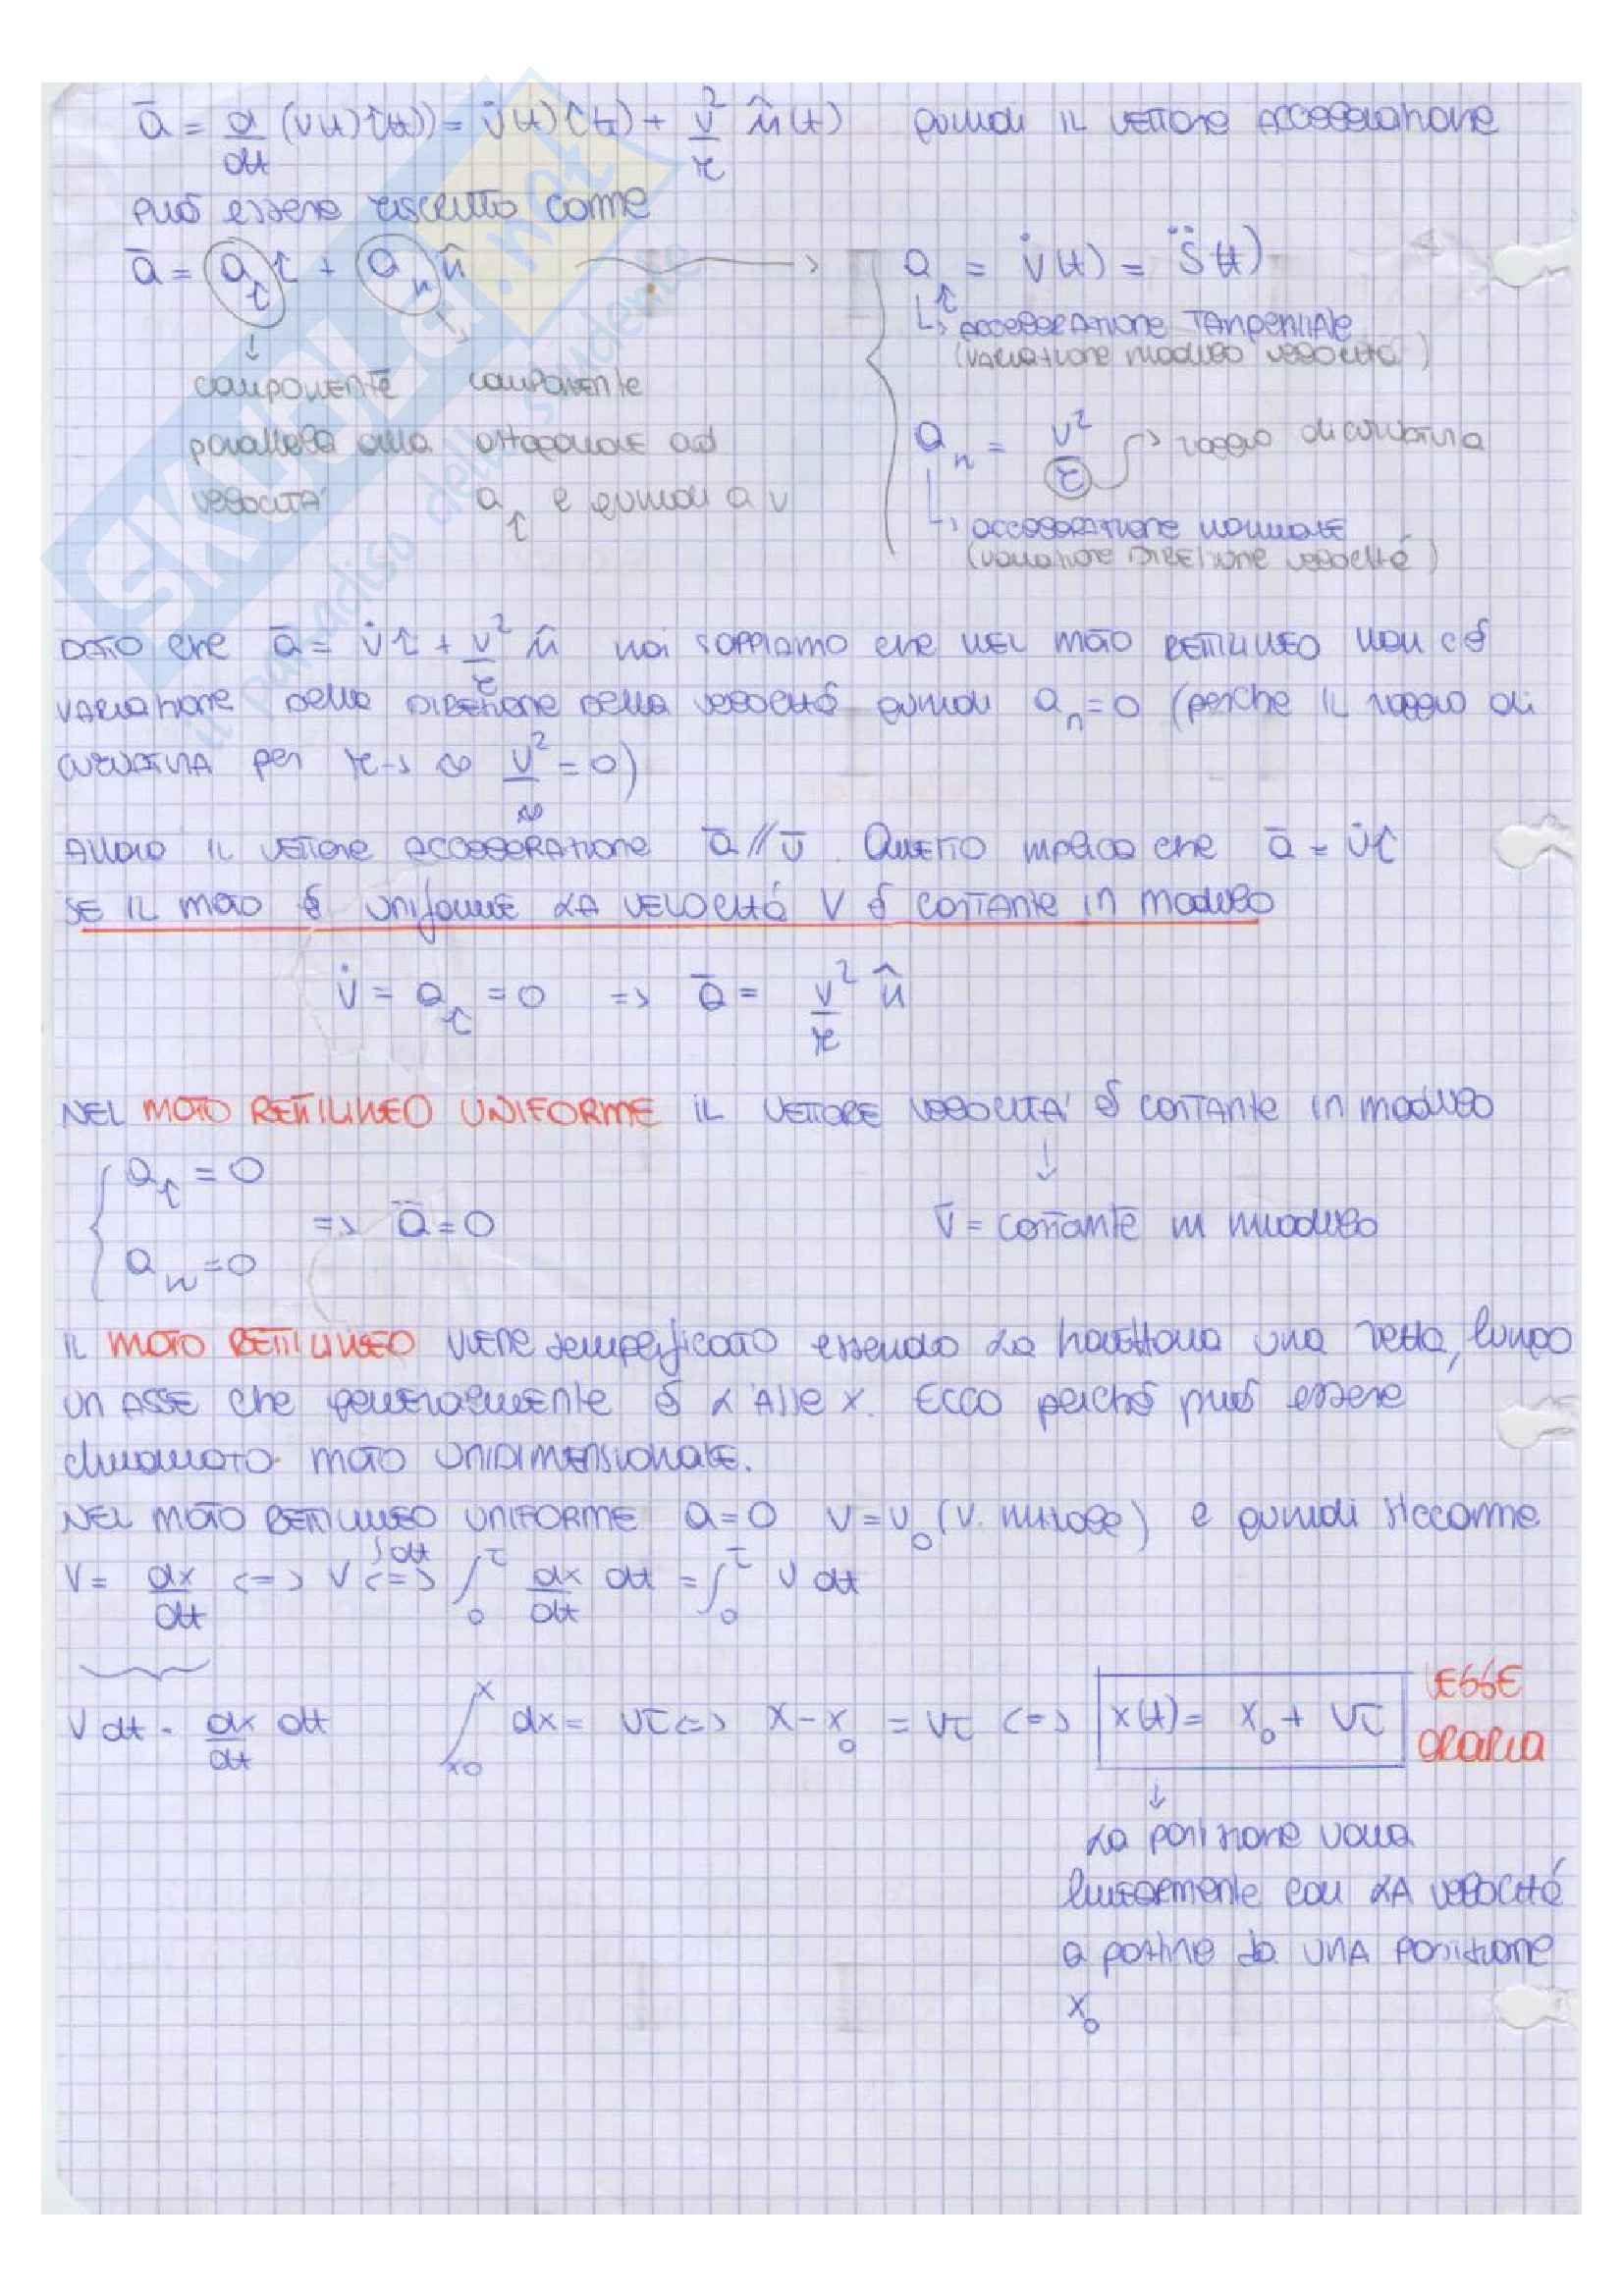 ā = d/dt (v(t) τ̂(t)) = v̇(t) τ̂(t) + v²/r n̂(t) quindi IL VETTORE ACCELERAZIONE
PUÒ ESSERE riscritto come
ā = a_τ τ̂ + a_n n̂ → a_τ = v̇(t) = s̈(t)
↳ ACCELERAZIONE TANGENZIALE
(VARIAZIONE modulo velocità)
↓ componente parallela alla velocità
componente ortogonale ad a_τ e quindi a v
a_n = v²/r → raggio di curvatura
↳ ACCELERAZIONE NORMALE
(variazione DIREZIONE velocità)
DATO che ā = v̇ τ̂ + v²/r n̂ noi SAPPIAMO che NEL MOTO RETTILINEO NON c'è
VARIAZIONE della DIREZIONE della velocità quindi a_n = 0 (perche IL raggio di
CURVATURA per r → ∞ v²/∞ = 0)
Allora IL VETTORE ACCELERAZIONE ā // v̄. Questo implica che ā = v̇ τ̂
SE IL MOTO è UNIFORME LA VELOCITÀ V è COSTANTE IN modulo
v̇ = a_τ = 0 => ā = v²/r n̂
NEL MOTO RETTILINEO UNIFORME IL VETTORE VELOCITA' è COSTANTE IN modulo
{ a_τ = 0
a_n = 0 => ā = 0
↓ v̄ = costante in modulo
IL MOTO RETTILINEO VIENE semplificato essendo LA traiettoria una retta, lungo
UN ASSE che generalmente è L'Asse x. ECCO perché può essere
chiamato MOTO UNIDIMENSIONALE.
NEL MOTO RETTILINEO UNIFORME a = 0 v = v₀ (v. iniziale) e quindi siccome
v = dx/dt <=> v <=> ∫dt ∫₀^τ dx/dt dt = ∫₀^τ v dt
v dt = dx/dt dt ∫_x0^x dx = vτ <=> x - x₀ = vτ <=> x(t) = x₀ + vτ LEGGE
ORARIA
↓
LA posizione varia
linearmente con LA velocità
a partire da UNA posizione
x₀
SKUOLA.net
il paradiso dello studente